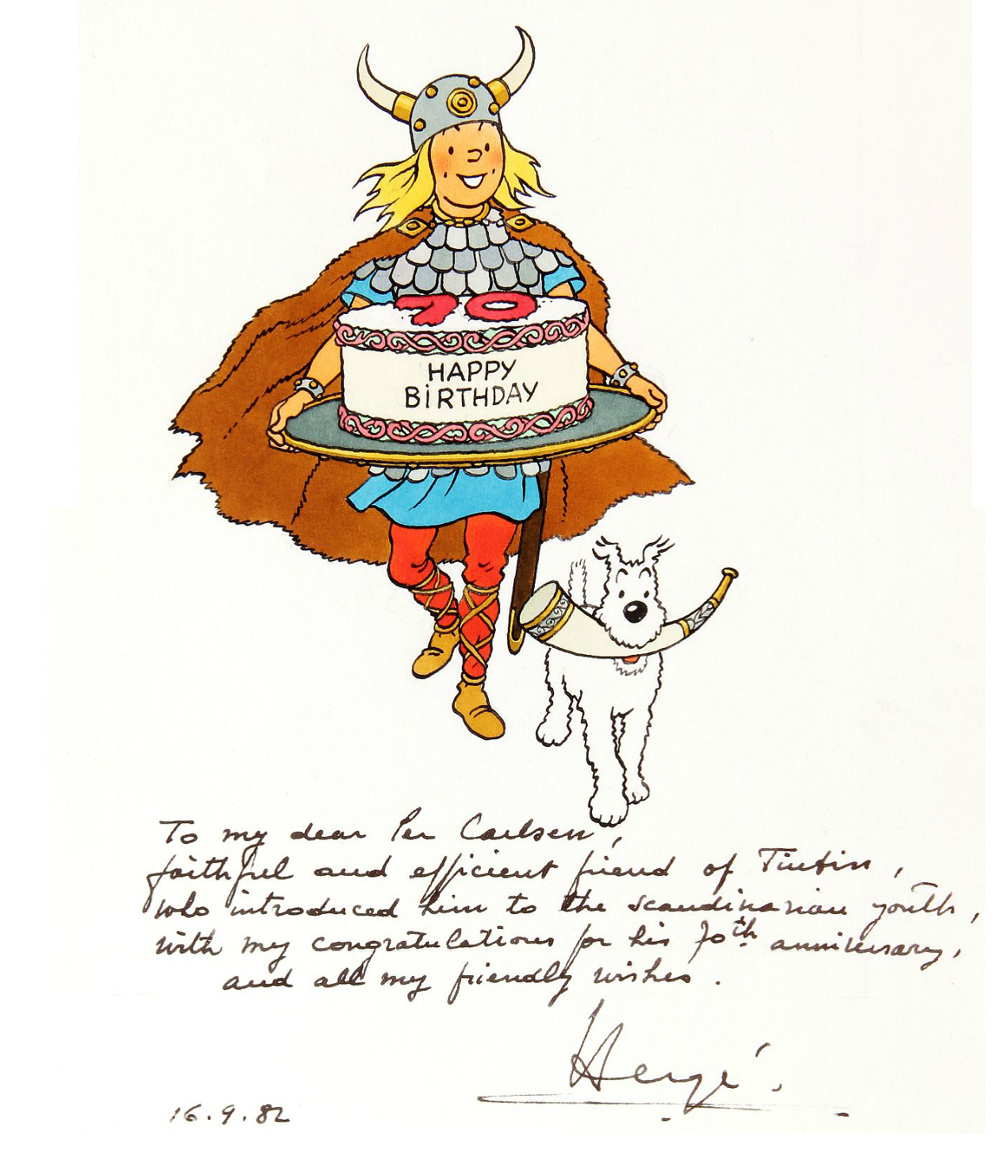 70
HAPPY
BiRTHDAY
To my dear Per Carlsen,
faithful and efficient friend of Tintin,
who introduced him to the scandinavian youth,
with my congratulations for his 70th anniversary,
and all my friendly wishes.
Hergé.
16.9.82